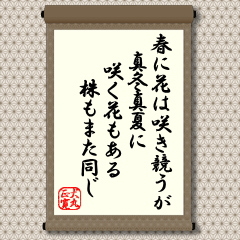 春に花は咲き競うが
真冬真夏に
咲く花もある
株もまた同じ